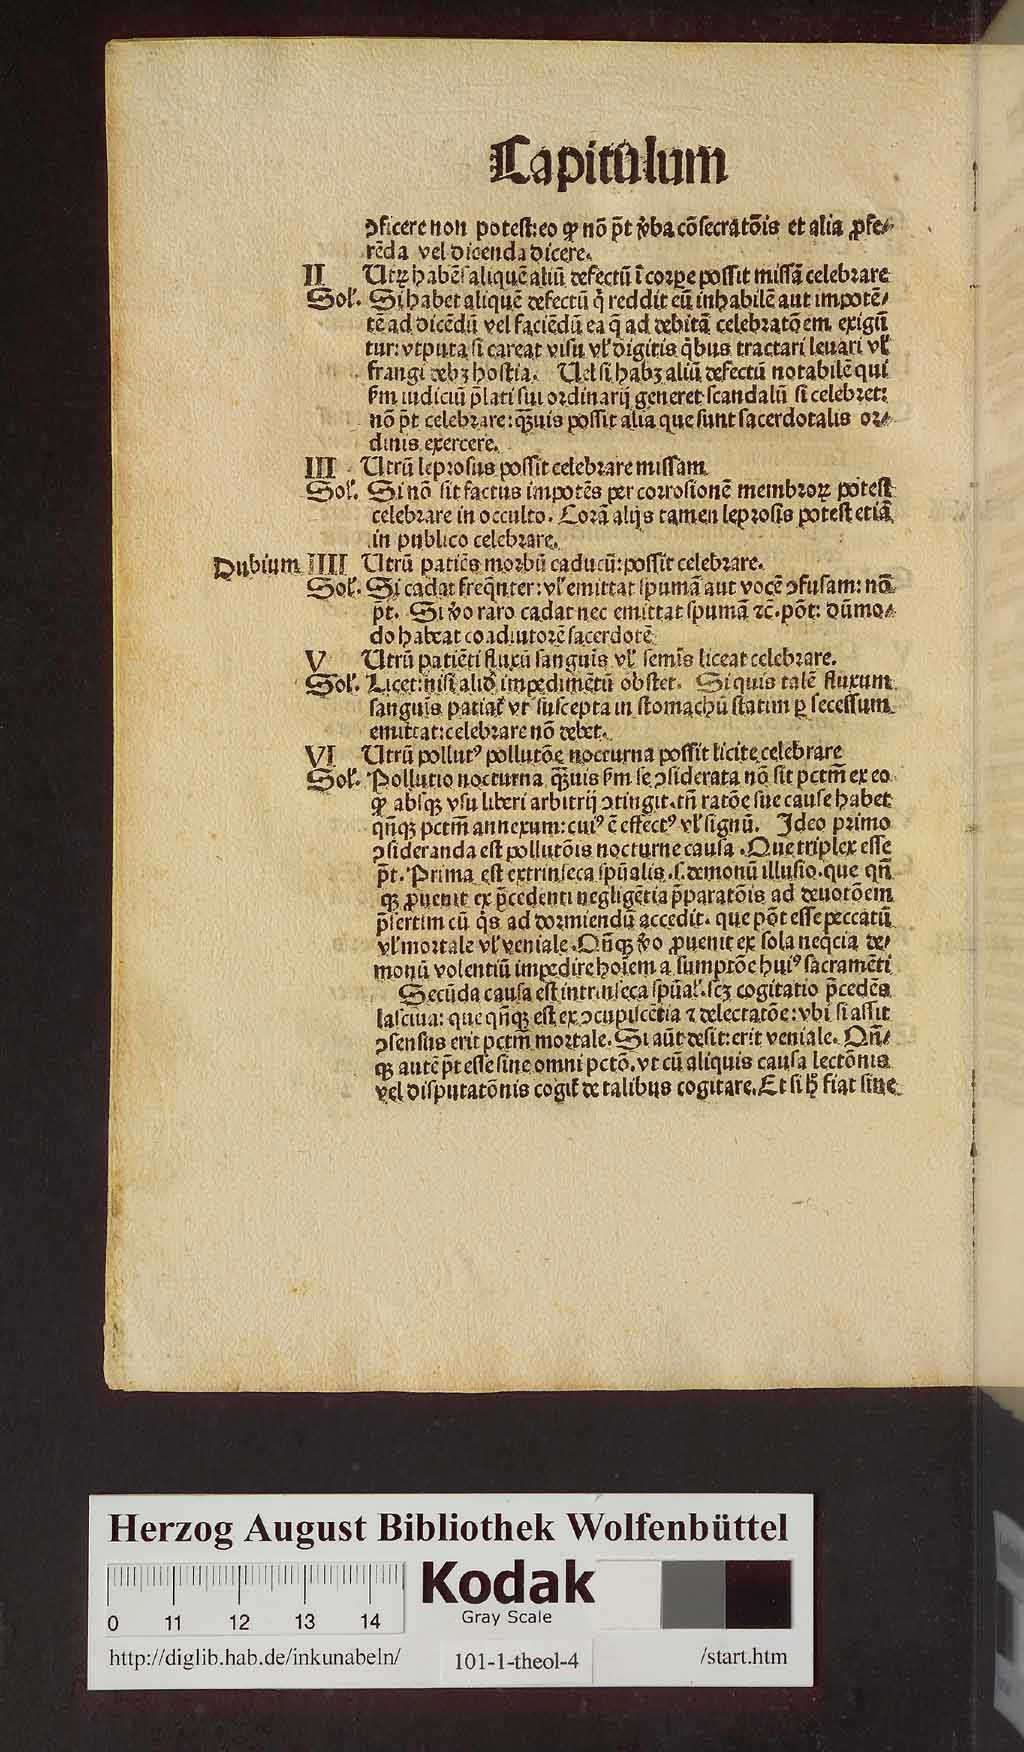 Capitulum
ↄficere non potest: eo ꝙ nō p̄t v̓ba cōsecratōis et alia ꝓfe⸗
rēda vel dicenda dicere.
II Utꝝ habēs aliquē aliū defectū ī corꝑe possit missā celebrare
Sol'. Si habet aliquē defectū q̄ reddit eū inhabilē aut impotē⸗
tē ad dicēdū vel faciēdū ea q̄ ad debitā celebratōem exigū
tur: vtputa si careat visu vl' digitis q̄bus tractari leuari vl'
frangi debꝫ hostia. Uel si habꝫ aliū defectū notabilē qui
s'm iudiciū p̄lati sui ordinarij generet scandalū si celebret:
nō p̄t celebrare: qᷓuis possit alia que sunt sacerdotalis or⸗
dinis exercere.
III Utrū leprosus possit celebrare missam
Sol'. Si nō sit factus impotēs per corrosionē membroꝝ potest
celebrare in occulto. Corā alijs tamen leprosis potest etiā
in publico celebrare.
Dubium IIII Utrū patiēs morbū caducū: possit celebrare.
Sol'. Si cadat freq̄nter: vl' emittat spumā aut vocē ↄfusam: nō
p̄t. Si v̓o raro cadat nec emittat spumā ⁊c̄. pōt: dūmo⸗
do habeat coadiutorē sacerdotē
V Utrū patiēti fluxū sanguis vl' semis liceat celebrare.
Sol'. Licet: nisi aliđ impedimētū obstet. Si quis talē fluxum
sanguis patiat᷑ vt suscepta in stomachū statim ꝑ secessum
emittat: celebrare nō debet.
VI Utrū pollutꝰ pollutōe nocturna possit licite celebrare
Sol'. Pollutio nocturna qᷓuis s'm se ↄsiderata nō sit pctm̄ ex eo
ꝙ absqꝫ vsu liberi arbitrij ↄtingit. tn̄ ratōe sue cause habet
qn̄qꝫ pctm̄ annexum: cuiꝰ ē effectꝰ vl' signū. Ideo primo
ↄsideranda est pollutōis nocturne causa. Que triplex esse
p̄t. Prima est extrinseca spūalis .s. demonū illusio. que qn̄
qꝫ ꝓuenit ex p̄cedenti negligētia p̄paratōis ad deuotōem
p̄sertim cū q̄s ad dormiendū accedit. que pōt esse peccatū
vl' mortale vl' veniale. Qn̄qꝫ v̓o ꝓuenit ex sola neq̄cia de⸗
monū volentiū impedire hoīem a sumptōe huiꝰ sacramēti
Secūda causa est intrinseca spūal'. scꝫ cogitatio p̄cedēs
lasciua: que qn̄qꝫ est ex ↄcupiscētia ⁊ delectatōe: vbi si assit
ↄsensus erit pctm̄ mortale. Si aūt desit: erit veniale. Qn̄⸗
qꝫ autē p̄t esse sine omni pctō. vt cū aliquis causa lectōnis
vel disputatōnis cogit᷑ de talibus cogitare. Et si hͦ fiat sine
Herzog August Bibliothek Wolfenbüttel
Kodak
Gray Scale
0 11 12 13 14
http://diglib.hab.de/inkunabeln/ 101-1-theol-4 /start.htm